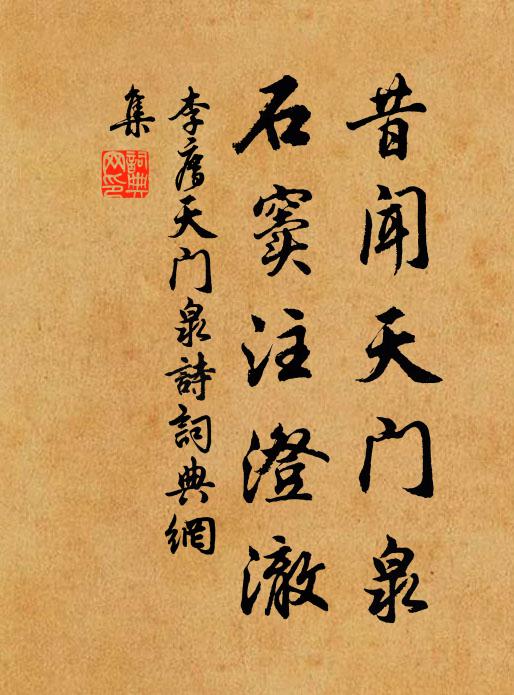 昔闻天门泉
石窦注澄澈
李廌天门泉詩詞典網
集
詞典网印